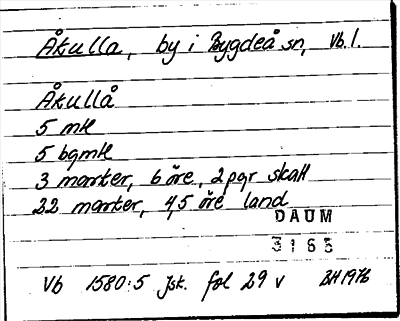 Åkulla, by i Bygdeå sn, Vb.l.
Åkullå
5 mtl
5 bgmtl
3 markter, 6 öre, 2 pgr skatt
22 markter, 4,5 öre land
DAUM
3165
Vb 1580:5 Jsk. fol 29 v BH 1976